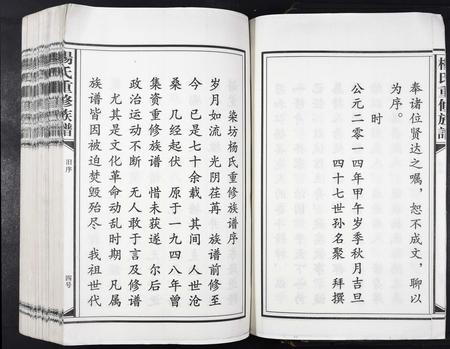 楊氏重修族譜
奉诸位贤达之嘱，恕不成文，聊以
为序。
时
公元二零一四年甲午岁季秋月吉旦
四十七世孙名聚 拜撰
染坊杨氏重修族谱序
岁月如流 光阴荏苒 族谱前修至
今 已是七十余载 其间人世沧
桑 几经起伏 原于一九四八年曾
集资重修族谱 惜未获遂 尔后
政治运动不断 无人敢于言及修谱
尤其是文化革命动乱时期 凡属
族谱皆因被迫焚毁殆尽 我祖世代
楊氏重修族譜
旧序
四号